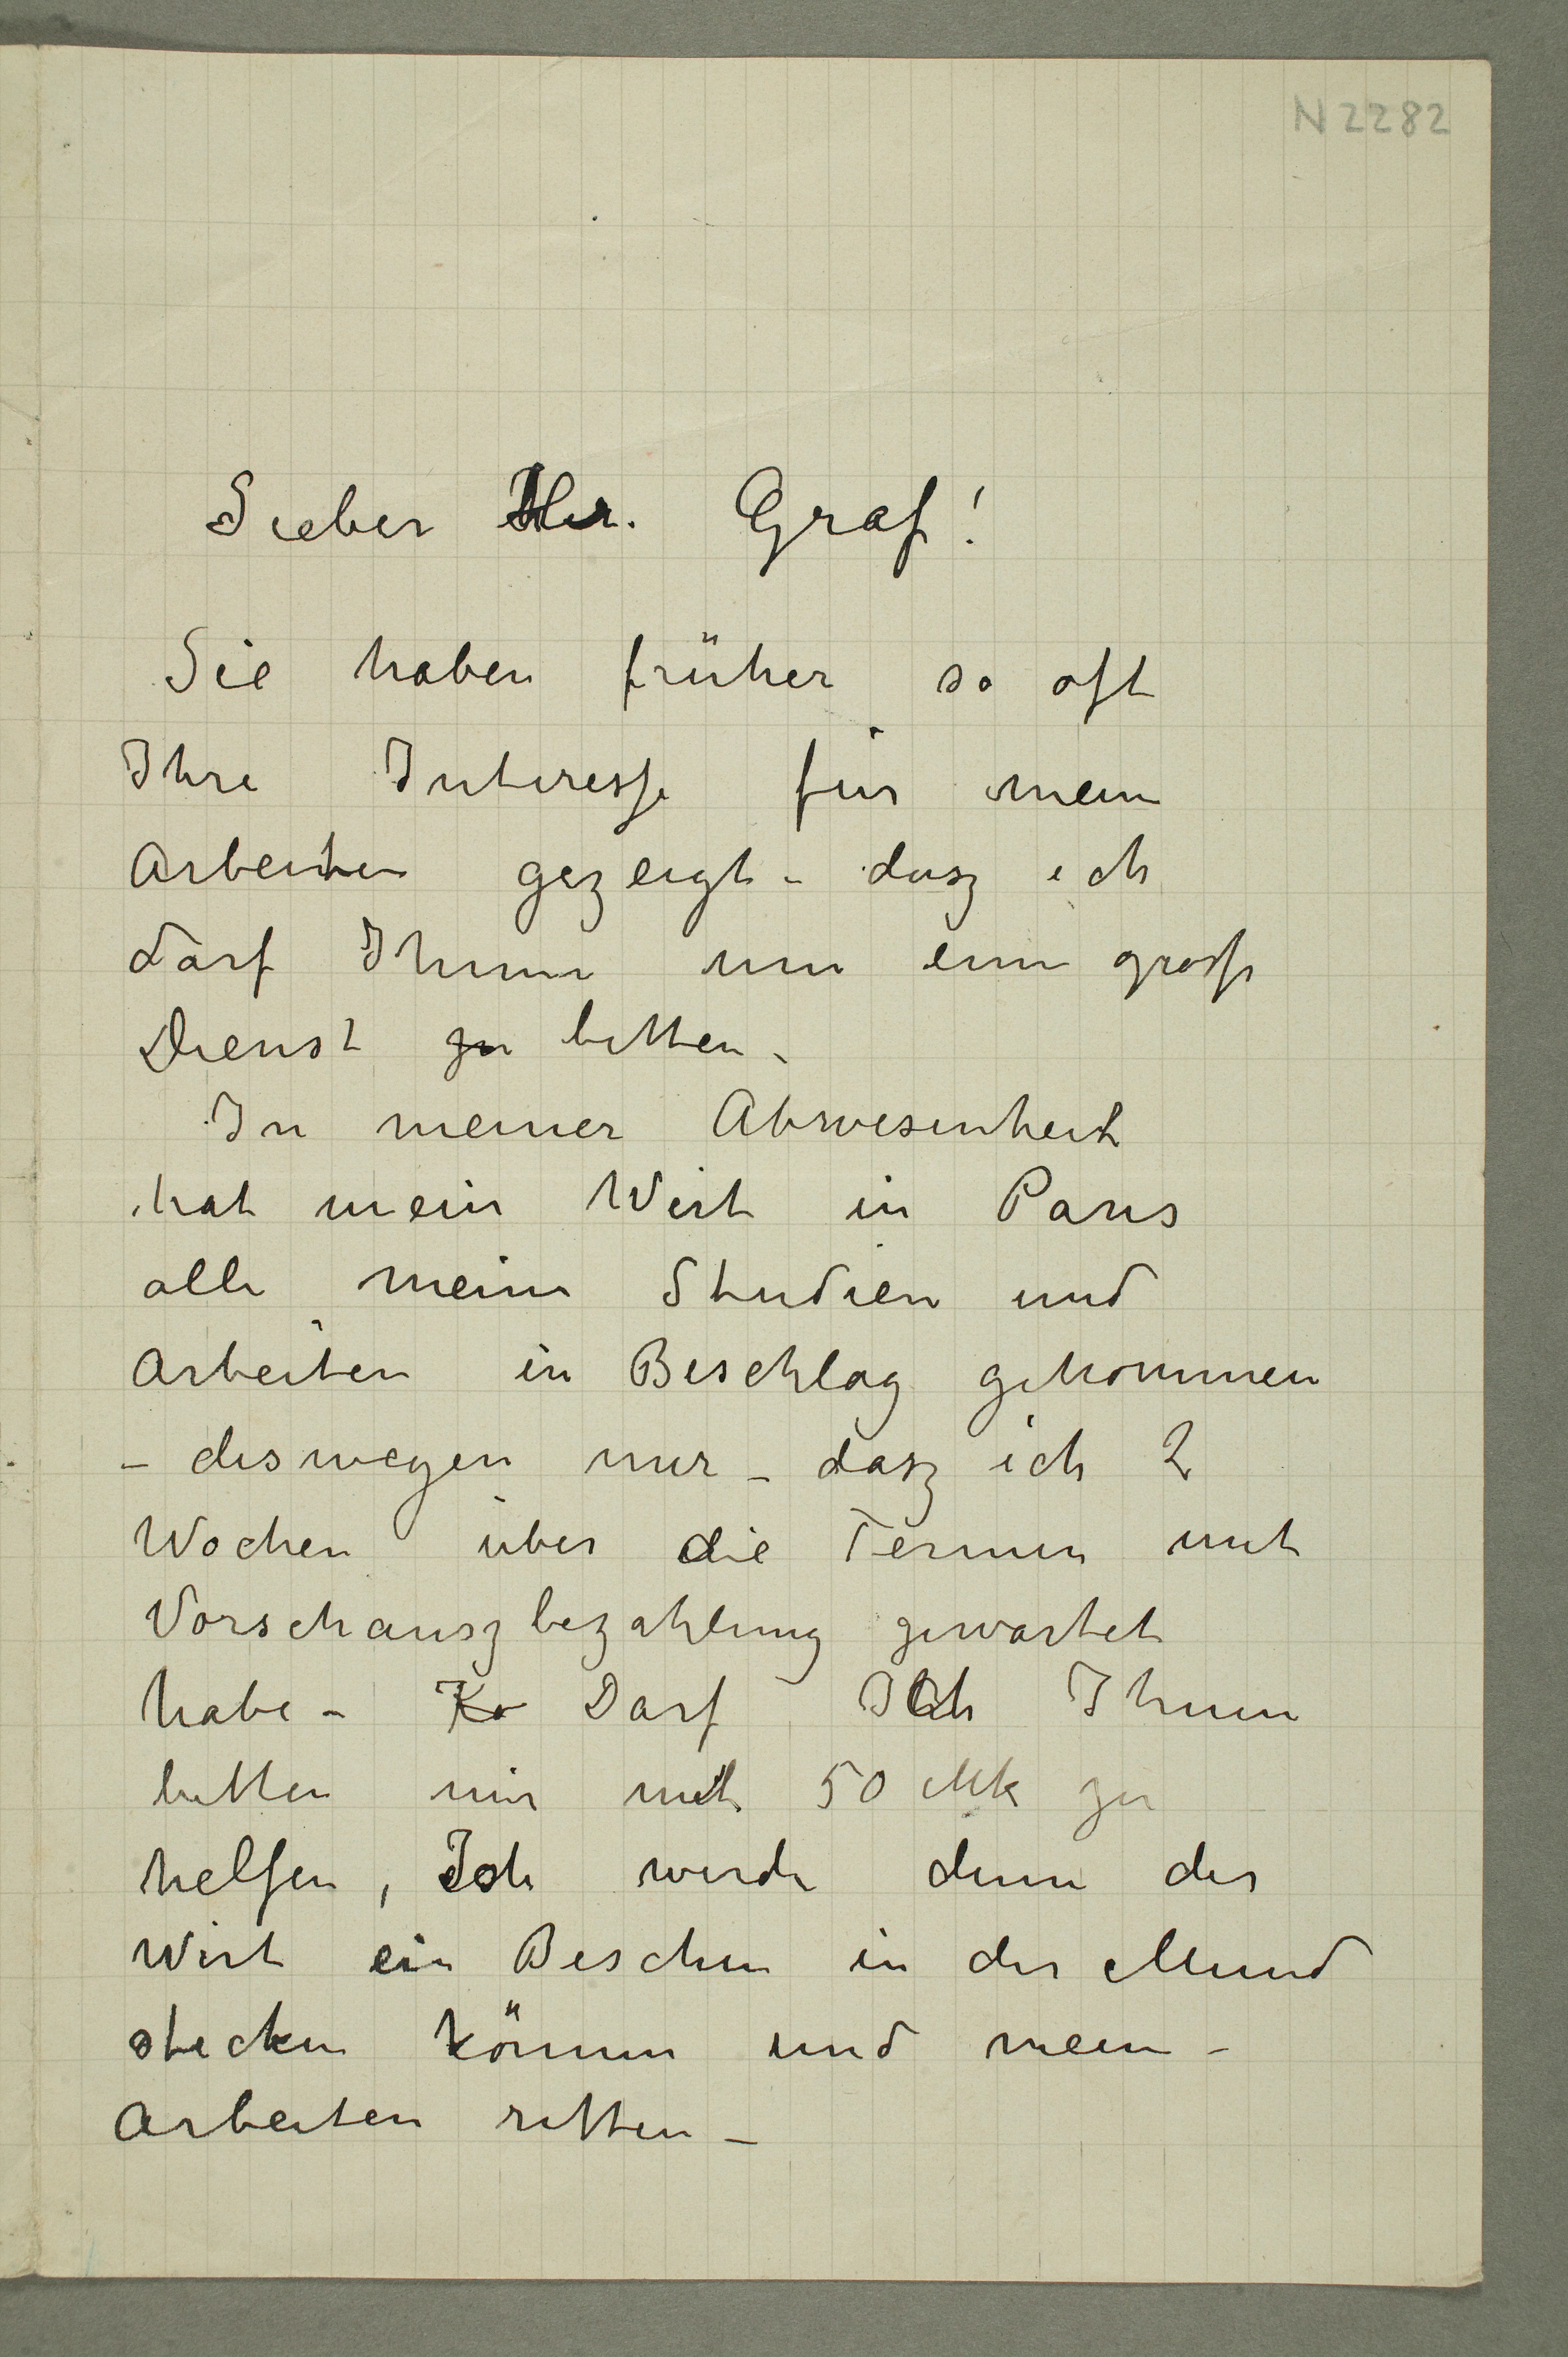 N 2282
Lieber Hr. Graf!
Sie haben früher so oft
Ihre Interesse für meine
Arbeiten gezeigt – dasz ich
darf Ihnen um eine grosse
Dienst zu bitten –
In meiner Abwesenheit
hat mein Wirt in Paris
alle meine Studien und
Arbeiten in Beschlag genommen
– deswegen nur – dasz ich 2
Wochen über die Termin mit
Vorschauszbezahlung gewartet
habe – Ka Darf Ich Ihnen
bitten mir mit 50 Mk zu
helfen, Ich werde denn der
Wirt ein Beschen in der Mund
stecken können und meine –
Arbeiten retten –